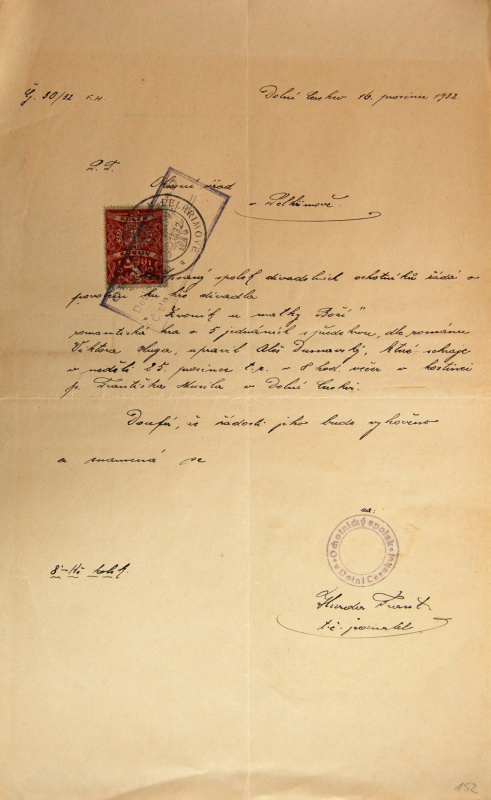 Čj. 30/32
Dolní Cerekev 16. prosince 1932.
P. T.
Okresní úřad
v Pelhřimově.
spolek divadelních ochotníků žádá o
povolení ku hře divadla
„Zvoník u matky Boží"
romantická hra o 5 jednáních s předehrou, dle románu
Viktora Huga, upravil Aleš Dumavský, které sehraje
v neděli 25. prosince t. r. v 8 hod. večer v hostinci
p. Františka Musila v Dolní Cerekvi.
Doufá, že žádosti jeho bude vyhověno
a znamená se
za:
Ochotnický spolek v Dolní Cerekvi
8-Kč kolek.
t. č. jednatel
152